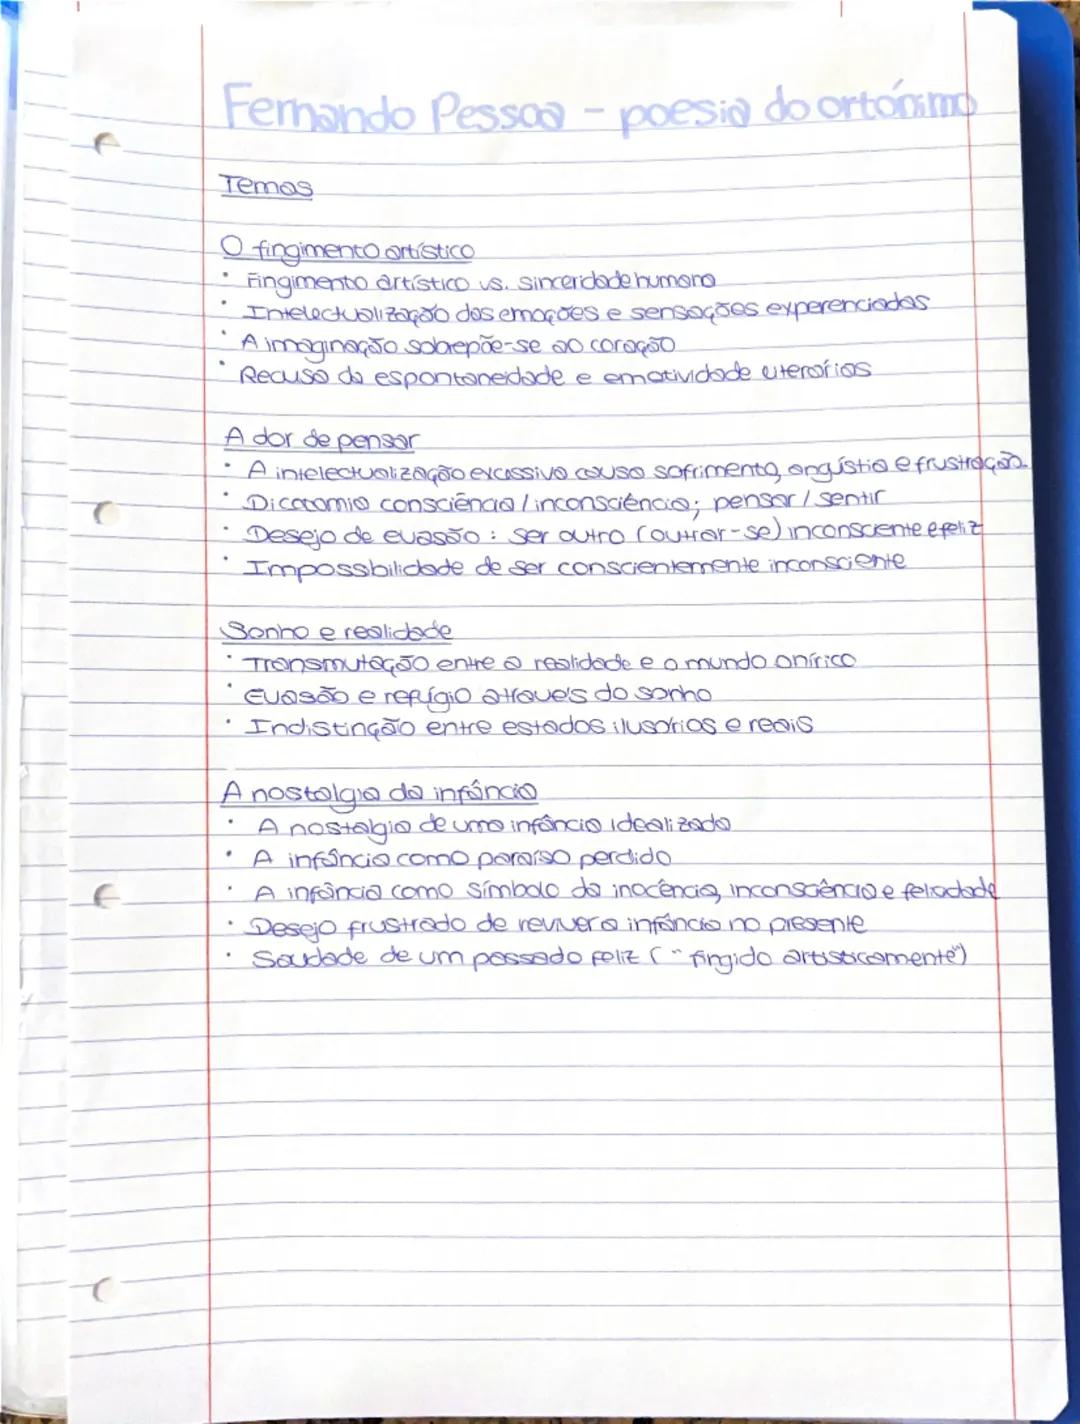 Fernando Pessoa - poesia do ortónimo
Temas
O fingimento artístico
· Fingimento artístico vs. sinceridade humana
· Intelectualização das emoções e sensações experenciadas
· A imaginação sobrepõe-se ao coração
· Recusa da espontaneidade e emotividade literárias
A dor de pensar
· A intelectualização excessiva causa sofrimento, angústia e frustração
· Dicotomia consciência / inconsciência; pensar / sentir
· Desejo de evasão : ser outro (outrar-se) inconsciente e feliz
· Impossibilidade de ser conscientemente inconsciente
Sonho e realidade
· Transmutação entre a realidade e o mundo onírico
· Evasão e refúgio através do sonho
· Indistinção entre estados ilusórios e reais
A nostalgia da infância
· A nostalgia de uma infância idealizada
· A infância como paraíso perdido
· A infância como símbolo da inocência, inconsciência e felicidade
· Desejo frustrado de reviver a infância no presente
· Saudade de um passado feliz ("fingido artisticamente")